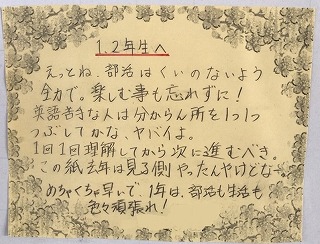 1.2年生へ
えっとね、部活はくいのないよう
全力で。楽しむ事も忘れずに！
英語苦きな人は分からん所を1つ1つ
つぶしてかな、ヤバイよ。
1回1回理解してから次に進むべき。
この紙去年は見る側やったんやけどなー。
めちゃくちゃ早いで、1年は、部活も生活も
色々頑張れ！